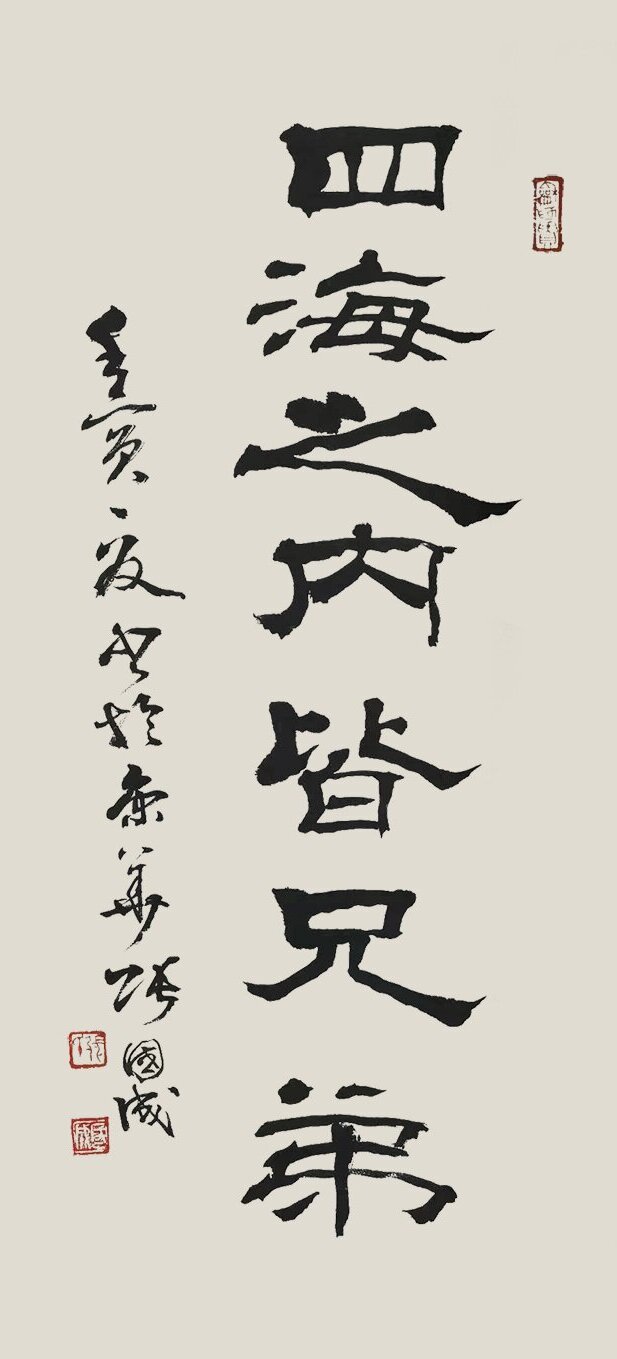 四海之内皆兄弟
壬寅之夏书於京华张国成